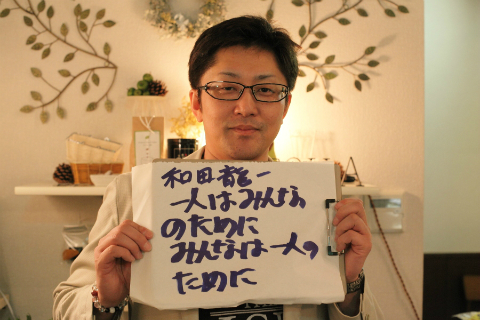 和田龍一
一人はみんな
のために
みんなは一人の
ために